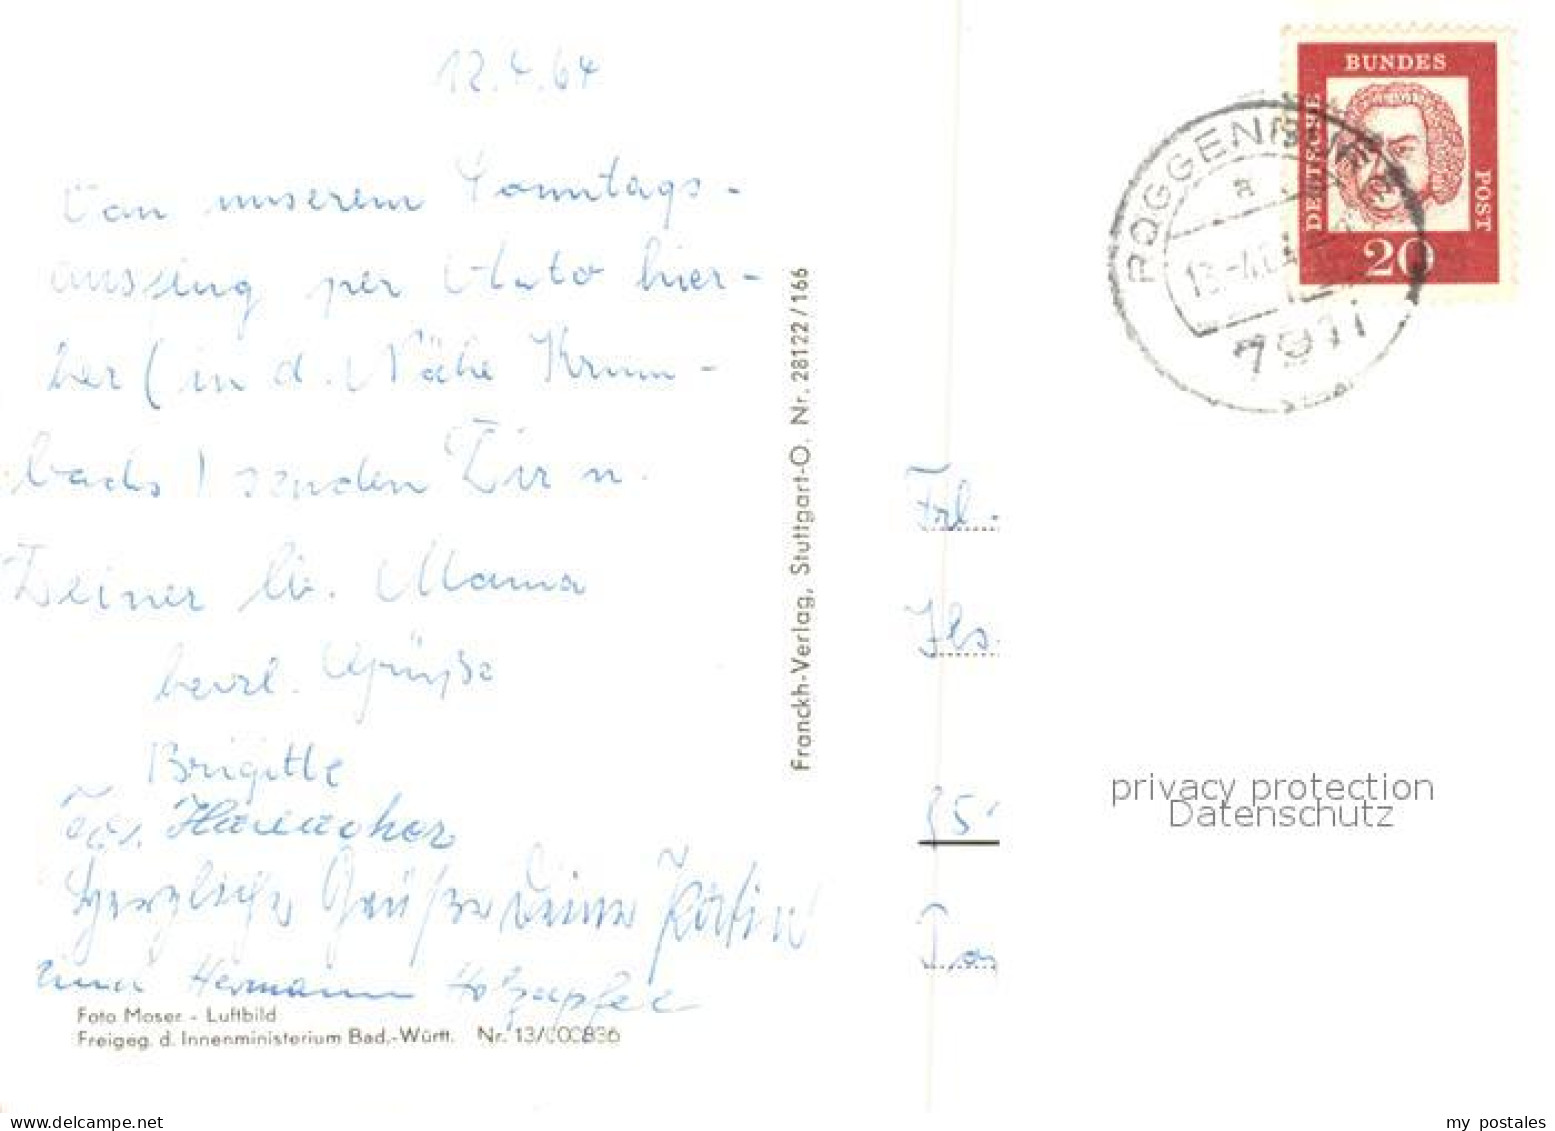 12.4.64
Von unserem Sonntags-
ausflug per Auto hier-
her (in d. Nähe Krum-
bachs) senden Dir u.
Deiner lb. Mama
herzl. Grüße
Brigitte
Jos.
Herzliche Grüße Deine
und Hermann Holzapfel
Foto Moser - Luftbild
Freigeg. d. Innenministerium Bad.-Württ. Nr. 13/000836
Franckh-Verlag, Stuttgart-O. Nr. 28122/166
DEUTSCHE BUNDES POST
20
a
13.-4.64
7911
Frl.
privacy protection
Datenschutz
www.delcampe.net
my_postales